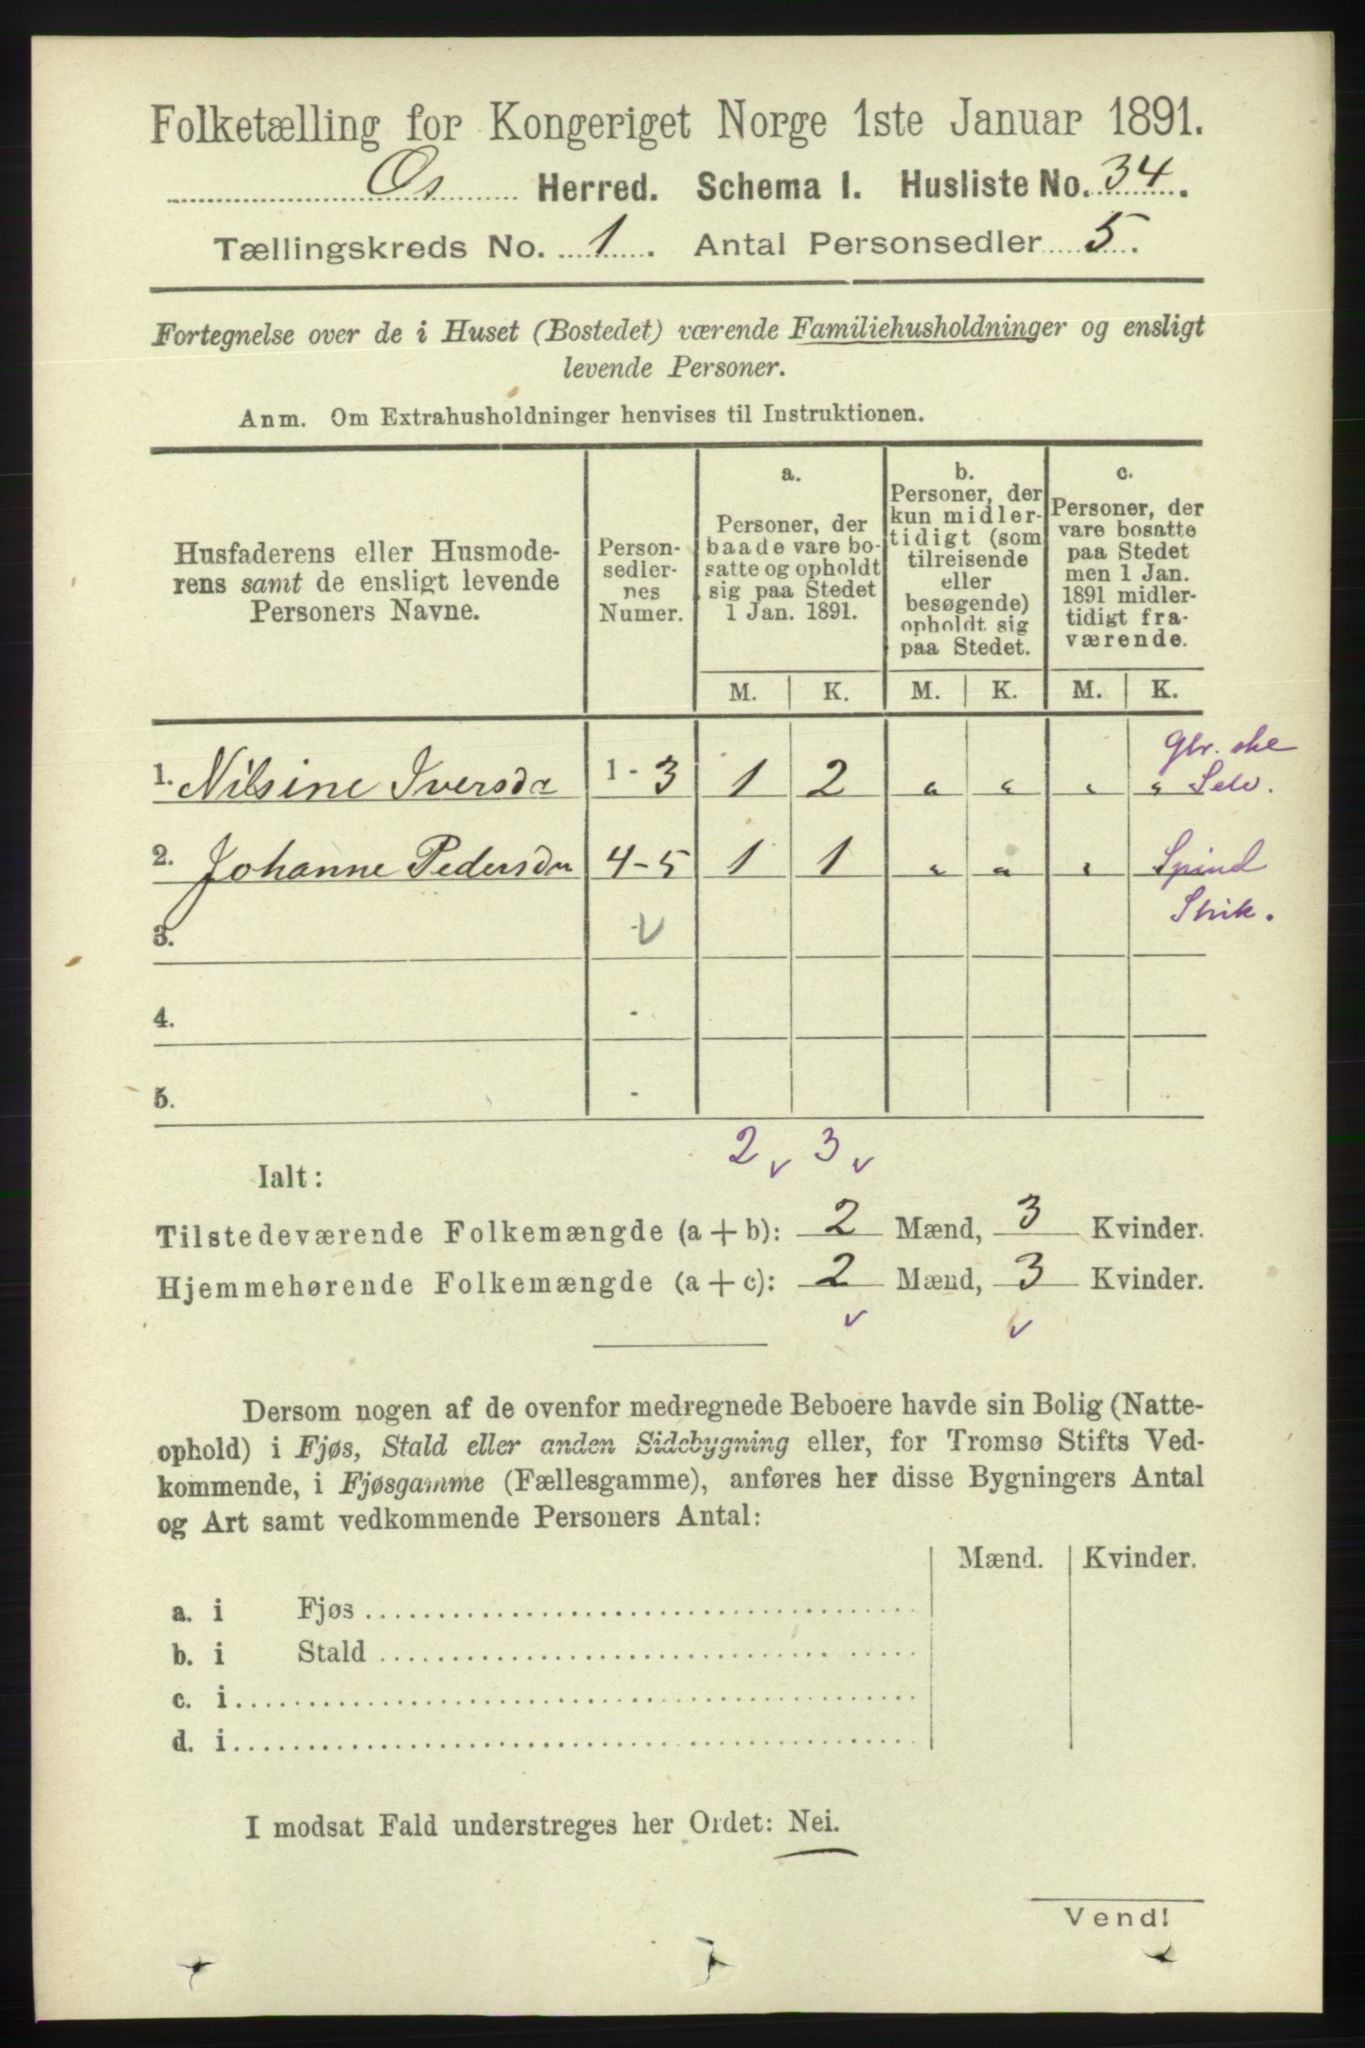 Folketælling for Kongeriget Norge 1ste Januar 1891.
Os Herred. Schema I. Husliste No. 34.
Tællingskreds No. 1. Antal Personsedler 5.
Fortegnelse over de i Huset (Bostedet) værende Familiehusholdninger og ensligt
levende Personer.
Anm. Om Extrahusholdninger henvises til Instruktionen.
Husfaderens eller Husmode-
rens samt de ensligt levende
Personers Navne.
Person-
sedler-
nes
Numer.
a.
Personer, der
baade vare bo-
satte og opholdt
sig paa Stedet
1 Jan. 1891.
b.
Personer, der
kun midler-
tidigt (som
tilreisende
eller
besøgende)
opholdt sig
paa Stedet.
c.
Personer, der
vare bosatte
paa Stedet
men 1 Jan.
1891 midler-
tidigt fra-
værende.
M. K. M. K. M. K.
Gbr. ske
1. Nilsine Iversdr 1 - 3 1 2 " " " " Selv.
2. Johanne Pedersdr 4-5 1 1 " " " Spind
Strik.
3. -
4. -
5. -
2 v 3 v
Ialt:
Tilstedeværende Folkemængde (a + b): 2 Mænd, 3 Kvinder.
Hjemmehørende Folkemængde (a + c): 2 Mænd, 3 Kvinder.
v v
Dersom nogen af de ovenfor medregnede Beboere havde sin Bolig (Natte-
ophold) i Fjøs, Stald eller anden Sidebygning eller, for Tromsø Stifts Ved-
kommende, i Fjøsgamme (Fællesgamme), anføres her disse Bygningers Antal
og Art samt vedkommende Personers Antal:
Mænd. Kvinder.
a. i Fjøs
b. i Stald
c. i
d. i
I modsat Fald understreges her Ordet: Nei.
Vend!